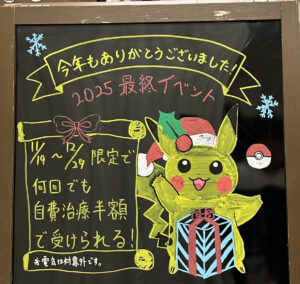 今年もありがとうございました!
2025 最終イベント
11/19〜12/29 限定で
何回でも
自費治療半額
で受けられる!